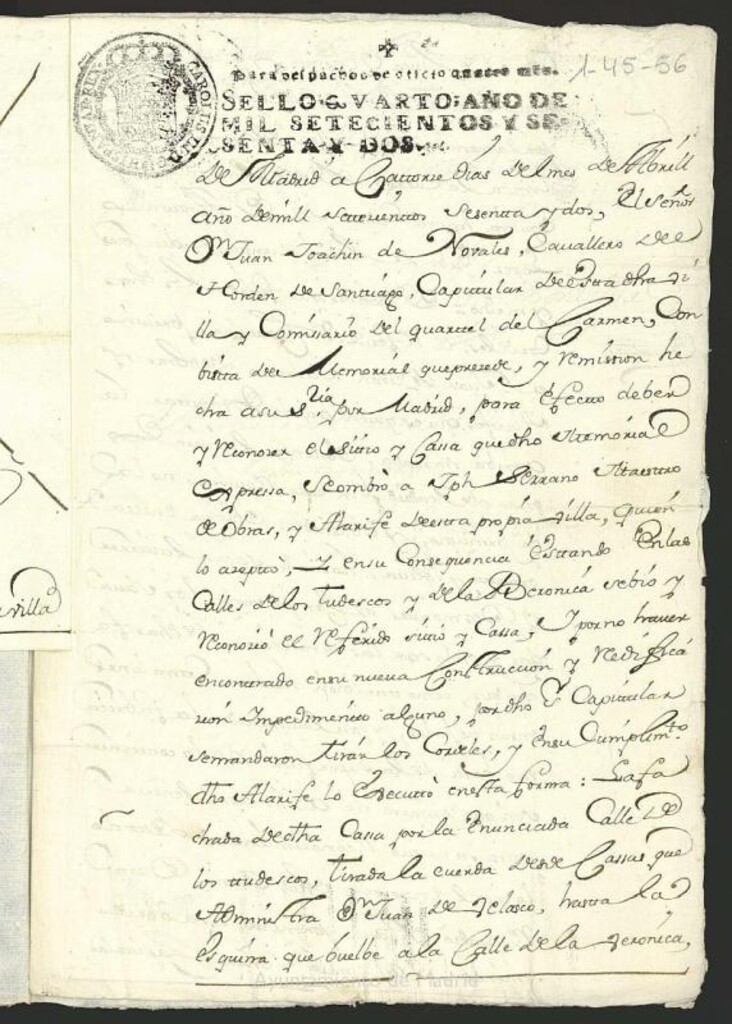 1-45-56
Para despachos de oficio quatro mrs.
SELLO QVARTO, AÑO DE
MIL SETECIENTOS Y SE-
SENTA Y DOS.
CAROLUS III
De Madrid a Cattorze dias del mes de Abrill
año de mill settecientos sesenta y dos, El señor
Dn Juan Joachin de Novales, Cavallero del
Horden de Santiago, Capitular de esta dha vi
lla y Comissario del quartel del Carmen, Con
bista del Memorial que prezede, y remission he
cha a su sria por Madrid, para efecto de ber
y reconozer el sitio y Cassa que dho Memorial
Expressa, Nombró a Jph Serrano Maestro
de Obras, y Alarife de esta propia villa, quien
lo azeptó, Y en su Consequencia Estando En las
Calles de los Tudescos y de la Beronica se bió y
reconozió el referido sitio y Cassa, Y por no haver
encontrado en su nueva Construccion y redifica
zion Impedimento alguno, por dho Sr Capitular
se mandaron tirar los Cordeles, y En su Cumplimto
dho Alarife lo Executtó en esta forma: La fa
chada de dtha Cassa por la Enunciada Calle De
los tudescos, tirada la cuerda desde Cassas que
Administra Dn Juan de Velasco, hasta la
Esquina que buelbe a la Calle de la Veronica,
villa
Ayuntamiento de Madrid